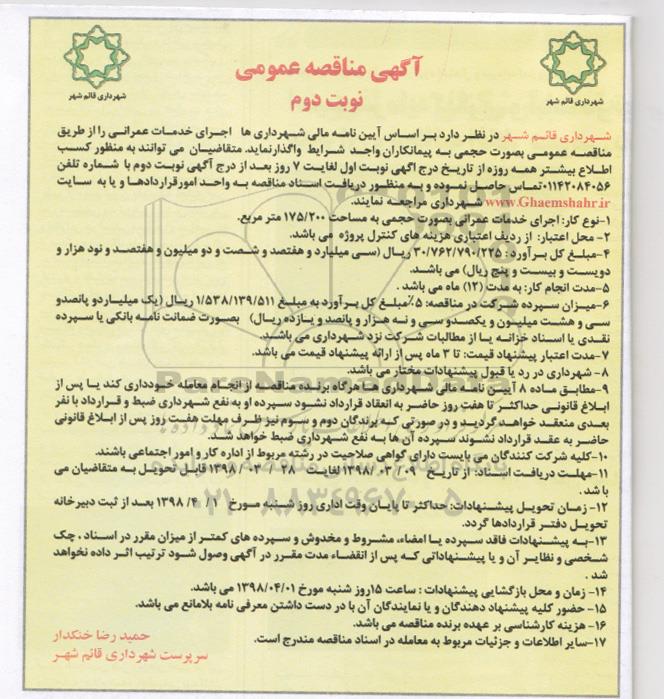 آگهی مناقصه عمومی
نوبت دوم
شهرداری قائم شهر
شهرداری قائم شهر
شهرداری قائم شهر در نظر دارد بر اساس آیین نامه مالی شهرداری ها اجرای خدمات عمرانی را از طریق
مناقصه عمومی بصورت حجمی به پیمانکاران واجد شرایط واگذارنماید. متقاضیان می توانند به منظور کسب
اطلاع بیشتر همه روزه از تاریخ درج اگهی نوبت اول لغایت ۷ روز بعد از درج آگهی نوبت دوم با شماره تلفن
۰۱۱۴۲۰۸۴۰۵۶تماس حاصل نموده و به منظور دریافت اسناد مناقصه به واحد امورقراردادها و یا به سایت
www.Ghaemshahr.ir شهرداری مراجعه نمایند.
۱-نوع کار: اجرای خدمات عمرانی بصورت حجمی به مساحت ۱۷۵/۲۰۰ متر مربع.
۲- محل اعتبار: از ردیف اعتباری هزینه های کنترل پروژه می باشد.
۴-مبلغ کل برآورد : ۳۰/۷۶۲/۷۹۰/۲۲۵ ریال (سی میلیارد و هفتصد و شصت و دو میلیون و هفتصد و نود هزار و
دویست و بیست و پنج ریال) می باشد.
۵-مدت انجام کار: به مدت (۱۲) ماه می باشد .
۶-میزان سپرده شرکت در مناقصه: ۵٪مبلغ کل برآورد به مبلغ ۱/۵۳۸/۱۳۹/۵۱۱ ریال (یک میلیاردو پانصدو
سی و هشت میلیون و یکصدو سی و نه هزار و پانصد و یازده ریال) بصورت ضمانت نامه بانکی یا سپرده
نقدی یا اسناد خزانه یا از مطالبات شرکت نزد شهرداری می باشد.
۷-مدت اعتبار پیشنهاد قیمت: تا ۳ ماه پس از ارائه پیشنهاد قیمت می باشد.
۸- شهرداری در رد یا قبول پیشنهادات مختار می باشد.
۹-مطابق ماده ۸ آیین نامه مالی شهرداری ها هرگاه برنده مناقصه از انجام معامله خودداری کند یا پس از
ابلاغ قانونی حداکثر تا هفت روز حاضر به انعقاد قرارداد نشود سپرده او به نفع شهرداری ضبط و قرارداد با نفر
بعدی منعقد خواهد گردید و در صورتی که برندگان دوم و سوم نیز ظرف مهلت هفت روز پس از ابلاغ قانونی
حاضر به عقد قرارداد نشوند سپرده آن ها به نفع شهرداری ضبط خواهد شد.
۱۰-کلیه شرکت کنندگان می بایست دارای گواهی صلاحیت در رشته مربوط از اداره کار و امور اجتماعی باشند.
۱۱-مهلت دریافت اسناد: از تاریخ ۰۹/ ۰۳ /۱۳۹۸ لغایت ۲۸ / ۰۳ / ۱۳۹۸ قابل تحویل به متقاضیان می
باشد .
۱۲- زمان تحویل پیشنهادات: حداکثر تا پایان وقت اداری روز شنبه مورخ ۱ / ۴/ ۱۳۹۸ بعد از ثبت دبیرخانه
تحویل دفتر قراردادها گردد.
۱۳-به پیشنهادات فاقد سپرده یا امضاء، مشروط و مخدوش و سپرده های کمتر از میزان مقرر در اسناد ، چک
شخصی و نظایر آن و یا پیشنهاداتی که پس از انقضاء مدت مقرر در آگهی وصول شود ترتیب اثر داده نخواهد
شد .
۱۴- زمان و محل بازگشایی پیشنهادات : ساعت ۱۵روز شنبه مورخ ۱۳۹۸/۰۴/۰۱ می باشد.
۱۵- حضور کلیه پیشنهاد دهندگان و یا نمایندگان آن با در دست داشتن معرفی نامه بلامانع می باشد.
۱۶- هزینه کارشناسی بر عهده برنده مناقصه می باشد.
۱۷-سایر اطلاعات و جزئیات مربوط به معامله در اسناد مناقصه مندرج است.
حمید رضا خنکدار
سرپرست شهرداری قائم شهر
۰۲۱-۸۸۳۴۹۶۷۰-۵